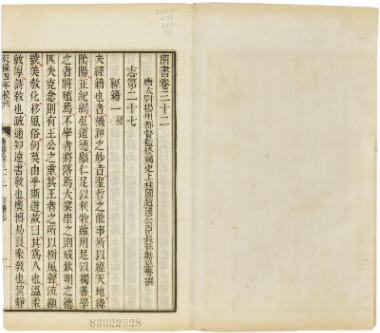 隋書卷三十二
唐太尉揚州都督監修國史上柱國趙國公臣長孫無忌等撰
志第二十七
經籍一 經
夫經籍也者機神之妙旨聖哲之能事所以經天地緯
陰陽正紀綱弘道德顯仁足以利物藏用足以獨善學
之者將殖焉不學者將落焉大業崇之則成欽明之德
匹夫克念則有王公之重其王者之所以樹風聲流顯
號美教化移風俗何莫由乎斯道故曰其爲人也溫柔
敦厚詩教也疏通知遠書教也廣博易良樂教也潔靜
乾隆四年校刊
83022528